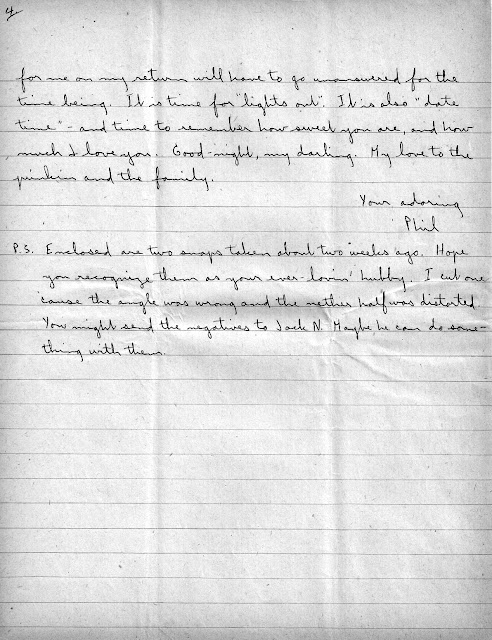 4
for me on my return will have to go unanswered for the
time being. It is time for "lights out". It is also "date
time" - and time to remember how sweet you are, and how
much I love you. Good night, my darling. My love to the
punkin and the family.
Your adoring
Phil
P.S. Enclosed are two snaps taken about two weeks ago. Hope
you recognize them as your ever-lovin' hubby. I cut one
'cause the angle was wrong and the nether half was distorted.
You might send the negatives to Jack N. Maybe he can do some-
thing with them.